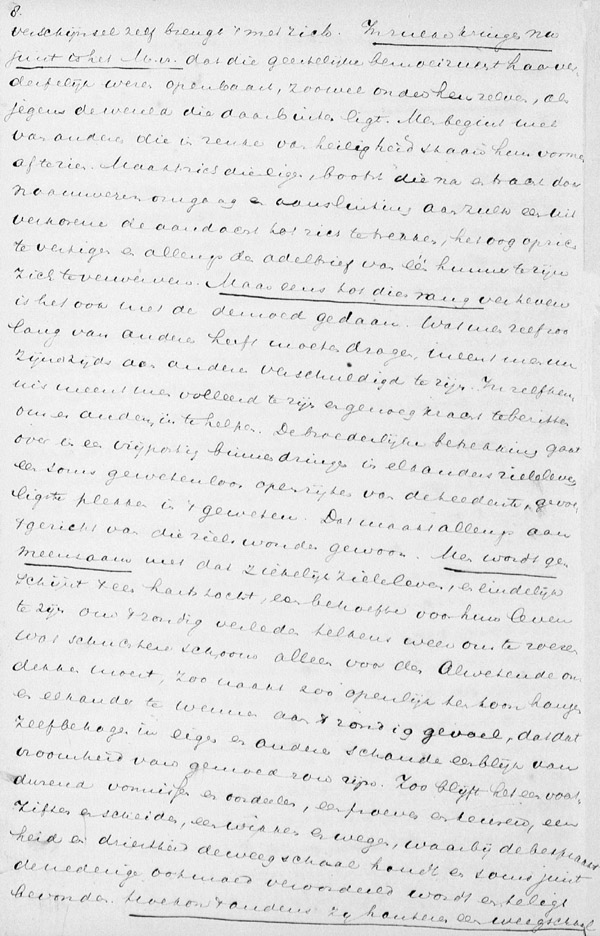 8.
verschijnsel zelf brengt 't met zich. In zulke kringen nu
juist is het M.H. dat die geestelijke bemoeizucht haar ver
derfelijk wezen openbaart, zoowel onder hen zelven, als
jegens de wereld die daarbuiten ligt. Men begint met
van anderen die in reuke van heiligheid staan hun vormen
af te zien. Maar straks die lager, book die na en tracht door
nauweren omgang en aansluiting aan zulk een uit
verkorene de aandacht tot zich te trekken, het oog op zich
te vestigen en allengs den adelbrief van één hunner te zijn
zich te verwerven. Maar eens tot dien rang verheven
is het ook met de demoed gedaan. Wat men zelf zoo
lang van anderen heeft moeten dragen, meent men nu
zijnerzijds aan anderen verschuldigd te zijn. In zelfken
nis meent men volleerd te zijn en genoeg kracht te bezitten
om er anderen in te helpen. De broederlijke betrekking gaat
over in een vrijpostig binnendringen in elkanders zieleleven
een soms gewetenloos openrijten van de teederste, gevoe
ligste plekken in 't geweten. Dat maakt allengs aan
't gericht van die zielswonden gewoon. Men wordt ge
meenzaam met dat ziekelijk zieleleven, en eindelijk
schijnt 't een hartstocht, een behoefte voor hun leven
te zijn om 't zondig verleden telkens weer om te roeren
Wat schuchtere schroom alleen voor den Alwetende ont
dekken moest, zoo naakt zoo openlijk ten toon hangen
en elkander te wennen aan 't zondig gevoel, dat dat
zelfbehagen in eigen en anderer schande een blijk van
vroomheid van gemoed zou zijn. Zoo blijft het een voort
durend vonnissen en oordeelen, een proeven en keuren, een
ziften en scheiden, een wikken en wegen, waarbij de
heid en driestheid de weegschaal houdt en soms juist
de nederige ootmoed veroordeeld wordt en te ligt
bevonden. Hoe kon 't anders zij hanteeren een weegschaal